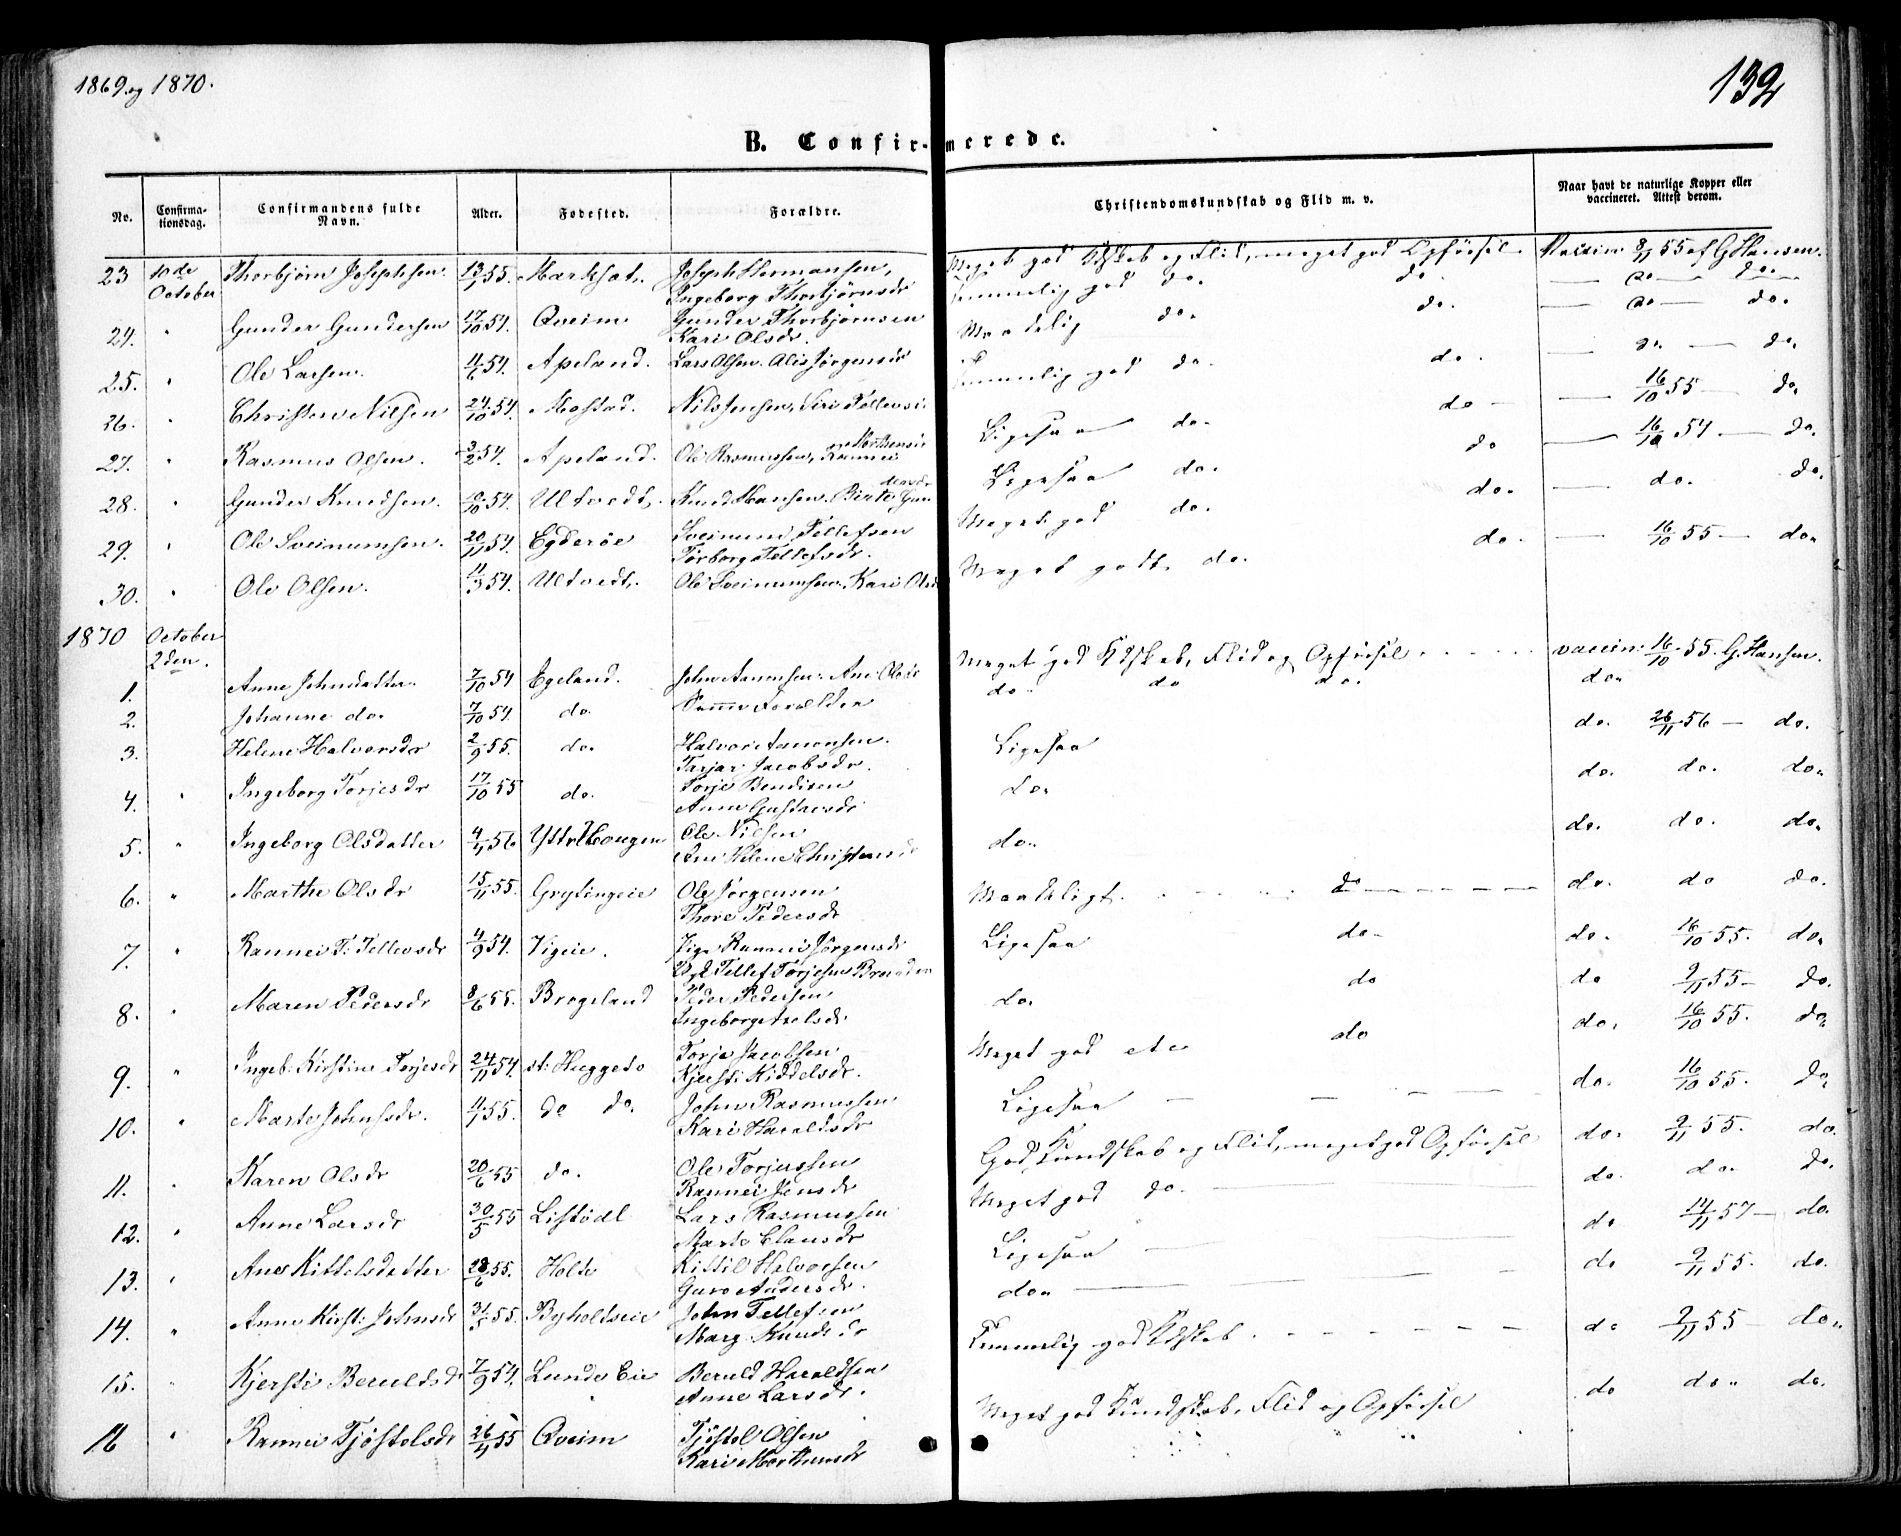 1869 og 1870.
132
B. Confir-merede.
No.
Confirma-
tionsdag.
Confirmandens fulde
Navn.
Alder.
Fødested.
Forældre.
Christendomskundskab og Flid m. v.
Naar havt de naturlige Kopper eller
vaccineret. Attest derom.
23 10de October Thorbjörn Josephsen 13/1 55. Marksæt. Joseph Hermansen, Meget god Kdskab og Flid, meget god Opförsel Vaccin 8/11 55 af G Hansen.
Ingeborg Thorbjörnsdr
24. " Gunder Gundersen 17/10 54. Qveim Gunder Thorbjørnsen Temmelig god do. do. — do — do.
Kari Olsdr.
25. " Ole Larsen. 4/6 54. Apeland. Lars Olsen. Alis Jörgensdr Maadelig do. do. — do — do.
26. " Christen Nilsen 24/10 54. Mostad. Nils Jensen, Siri Tellevsd. Temmelig god do. do. — do — do.
27. " Rasmus Olsen. 3/2 54. Apeland. Ole Rasmussen, Rannei Mortensdr Ligesaa do. do — — 16/10 55 — do.
28. " Gunder Knudsen. 9/10 54. Ultvedt. Knud Hansen. Birte Gundersdr Ligesaa do. do — 16/10 54 — do.
29. " Ole Sveinumsen. 20/11 54. Egderöe Sveinum Tellefsen Meget god do. do. — do. do.
Torborg Tellefsdr.
30. " Ole Olsen. 11/3 54. Ultvedt, Ole Sveinumsen, Kari Olsd Meget godt, do. do. — 16/10 55 — do.
1870 October
2den.
1. Anne Johnsdatter. 7/10 54 Egeland. John Aanonsen. Ane Olsdr Meget god Kdskab, Flid og Opförsel vaccin 16/10 55. G. Hansen.
2. Johanne do. 7/10 54. do. Samme Forældre do. do do. do.
3. Helene Halvorsdr 2/9 55. do. Halvor Aanonsen. Ligesaa do. 26/11 56 — do.
Tarjer Jacobsdr.
4. " Ingeborg Torjesdr 17/10 55 do. Torje Bendixen do. do. do. do.
Anne Gustavsdr
5. " Ingeborg Olsdatter 4/1 56 Ystr Hougen Ole Nilsen do. do. do. do.
Ane Helene Christensdr
6. " Marthe Olsdr 15/11 55. Grytingeie Ole Jörgensen Maadeligt. do do. do do.
Thore Pedersdr
7. " Rannei T. Tellevsdr 4/9 54. Vigeie. Pige Rannei Jörgensdr Ligesaa do. do. 16/10 55. do.
Ugk Tellef Torjesen
8. " Maren Pedersdr 8/6 55. Brogeland Peder Pedersen do. do do 2/11 55 — do.
Ingeborg Axelsdr.
9. " Ingeb: Kirstine Torjesdr 24/11 54. st. Huggeto Torje Jacobsen Meget god etc do do. 16/10 55. do.
Kjersti Kiddelsdr.
10. " Marte Johnsdr. 4/1 55. do do. John Rasmussen Ligesaa — — — do. 16/10 55. do
Kari Haraldsdr
11. " Karen Olsdr 20/6 55 do. Ole Torjussen God Kundskab og Flid, meget god Opförsel do. 2/11 55. do.
Rannei Jensdr
12. " Anne Larsdr 30/5 55 Listödl Lars Rasmussen Meget god do. — do. do. do.
Marte Clausdr
13. " Ane Kittelsdatter 28/6 55. Holte Kittil Halvorsen Ligesaa — do 14/11 57 — do.
Guro Andersdr.
14. " Anne Kirst: Johnsdr 31/5 55. Byholtseie John Tellefsen do. — do 2/11 55. do.
Marg Knudsdr
15. " Kjersti Beruldsd 7/9 54. Lunde Eie Beruld Haraldsen Temmelig god Kdskab. do 2/11 55 — do.
Anne Larsdr.
16 " Rannei Tjöstolsdr 26/11 55 Qveim Tjöstol Olsen Meget god Kundskab, Flid og Opförsel do do. do.
Kari Mortensdr